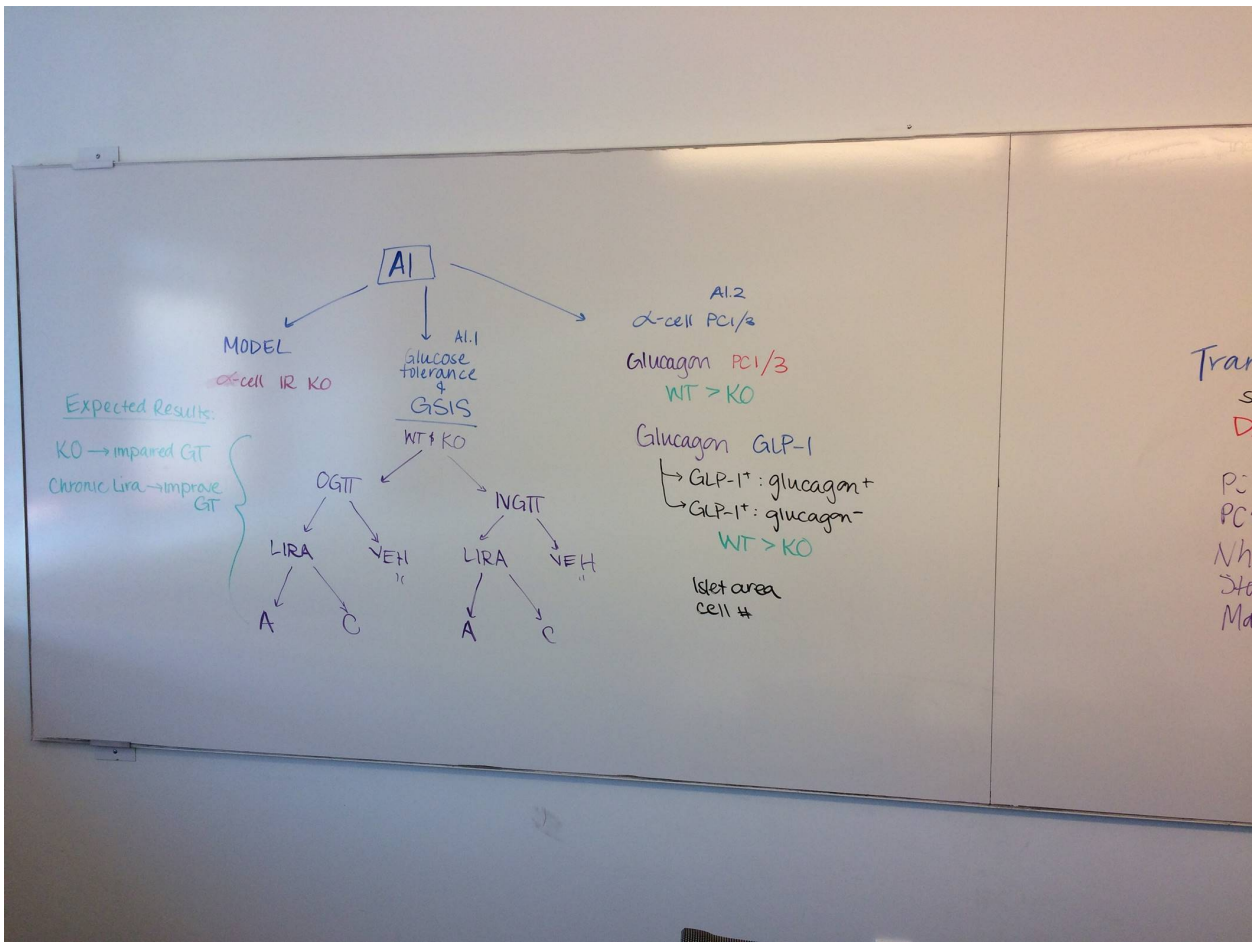 A1
MODEL
α-cell IR KO
Expected Results:
KO → impaired GT
Chronic Lira → improve
GT
A1.1
Glucose
tolerance
&
GSIS
WT & KO
OGTT
IVGTT
LIRA
VEH
LIRA
VEH
A
C
A
C
A1.2
α-cell PC1/3
Glucagon PC1/3
WT > KO
Glucagon GLP-1
→ GLP-1⁺ : glucagon⁺
→ GLP-1⁺ : glucagon⁻
WT > KO
Islet area
cell #
Tran
S
D
PC
Nh
Sta
Ma